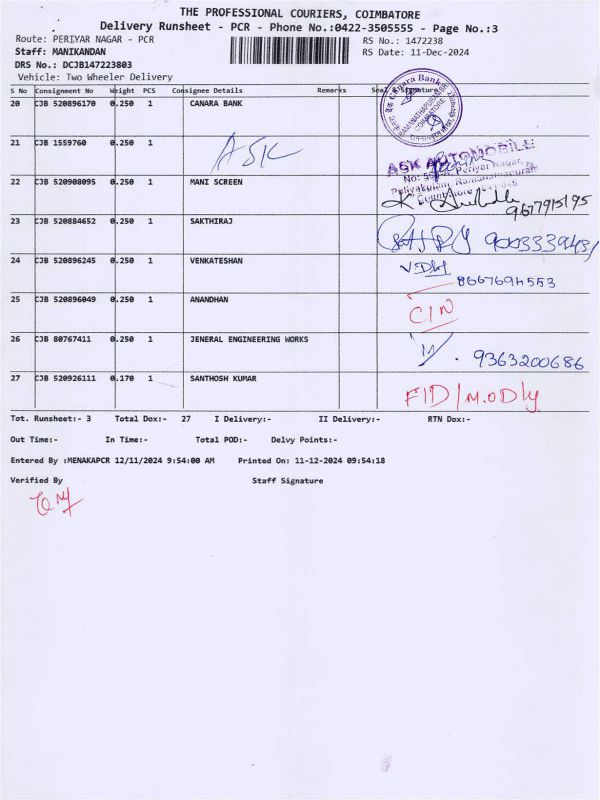 THE PROFESSIONAL COURIERS, COIMBATORE
Delivery Runsheet - PCR - Phone No.:0422-3505555 - Page No.:3
Route: PERIYAR NAGAR - PCR RS No.: 1472238
Staff: MANIKANDAN RS Date: 11-Dec-2024
DRS No.: DCJB147223803
Vehicle: Two Wheeler Delivery
S No Consignment No Weight PCS Consignee Details Remarks Seal & Signature
20 CJB 520896170 0.250 1 CANARA BANK
Canara Bank
RAMANATHAPURAM
COIMBATORE
21 CJB 1559760 0.250 1 ASK
ASK AUTOMOBILE
Periyar Nagar,
Puliyakulam, Ramanathapuram
Coimbatore
22 CJB 520908095 0.250 1 MANI SCREEN
9677915195
23 CJB 520884652 0.250 1 SAKTHIRAJ
24 CJB 520896245 0.250 1 VENKATESHAN
8667694553
25 CJB 520896049 0.250 1 ANANDHAN CIN
26 CJB 80767411 0.250 1 JENERAL ENGINEERING WORKS
9363200686
27 CJB 520926111 0.170 1 SANTHOSH KUMAR FID/M.ODly
Tot. Runsheet:- 3 Total Dox:- 27 I Delivery:- II Delivery:- RTN Dox:-
Out Time:- In Time:- Total POD:- Delvy Points:-
Entered By :MENAKAPCR 12/11/2024 9:54:00 AM Printed On: 11-12-2024 09:54:18
Verified By Staff Signature